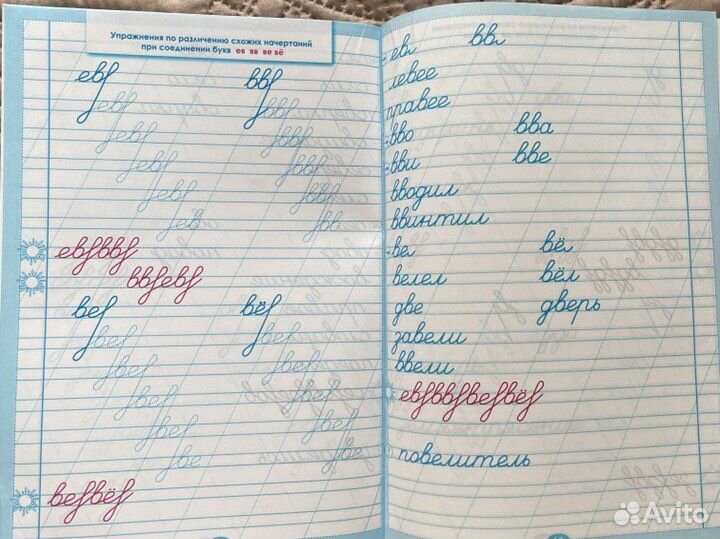 Упражнения по различению схожих начертаний
при соединении букв ев вв ве вё
ев вв
ев вв
ев вв
ев вв
ев вв
ев вв
еввв
ввев
ве вё
ве ве
ве ве
ве ве
ве ве
ве ве
вевё
ев вв
левее
правее
вво вва
вви вве
вводил
ввинтил
ве вё
велел вёл
две дверь
завели
ввели
евввевё
повелитель
Avito